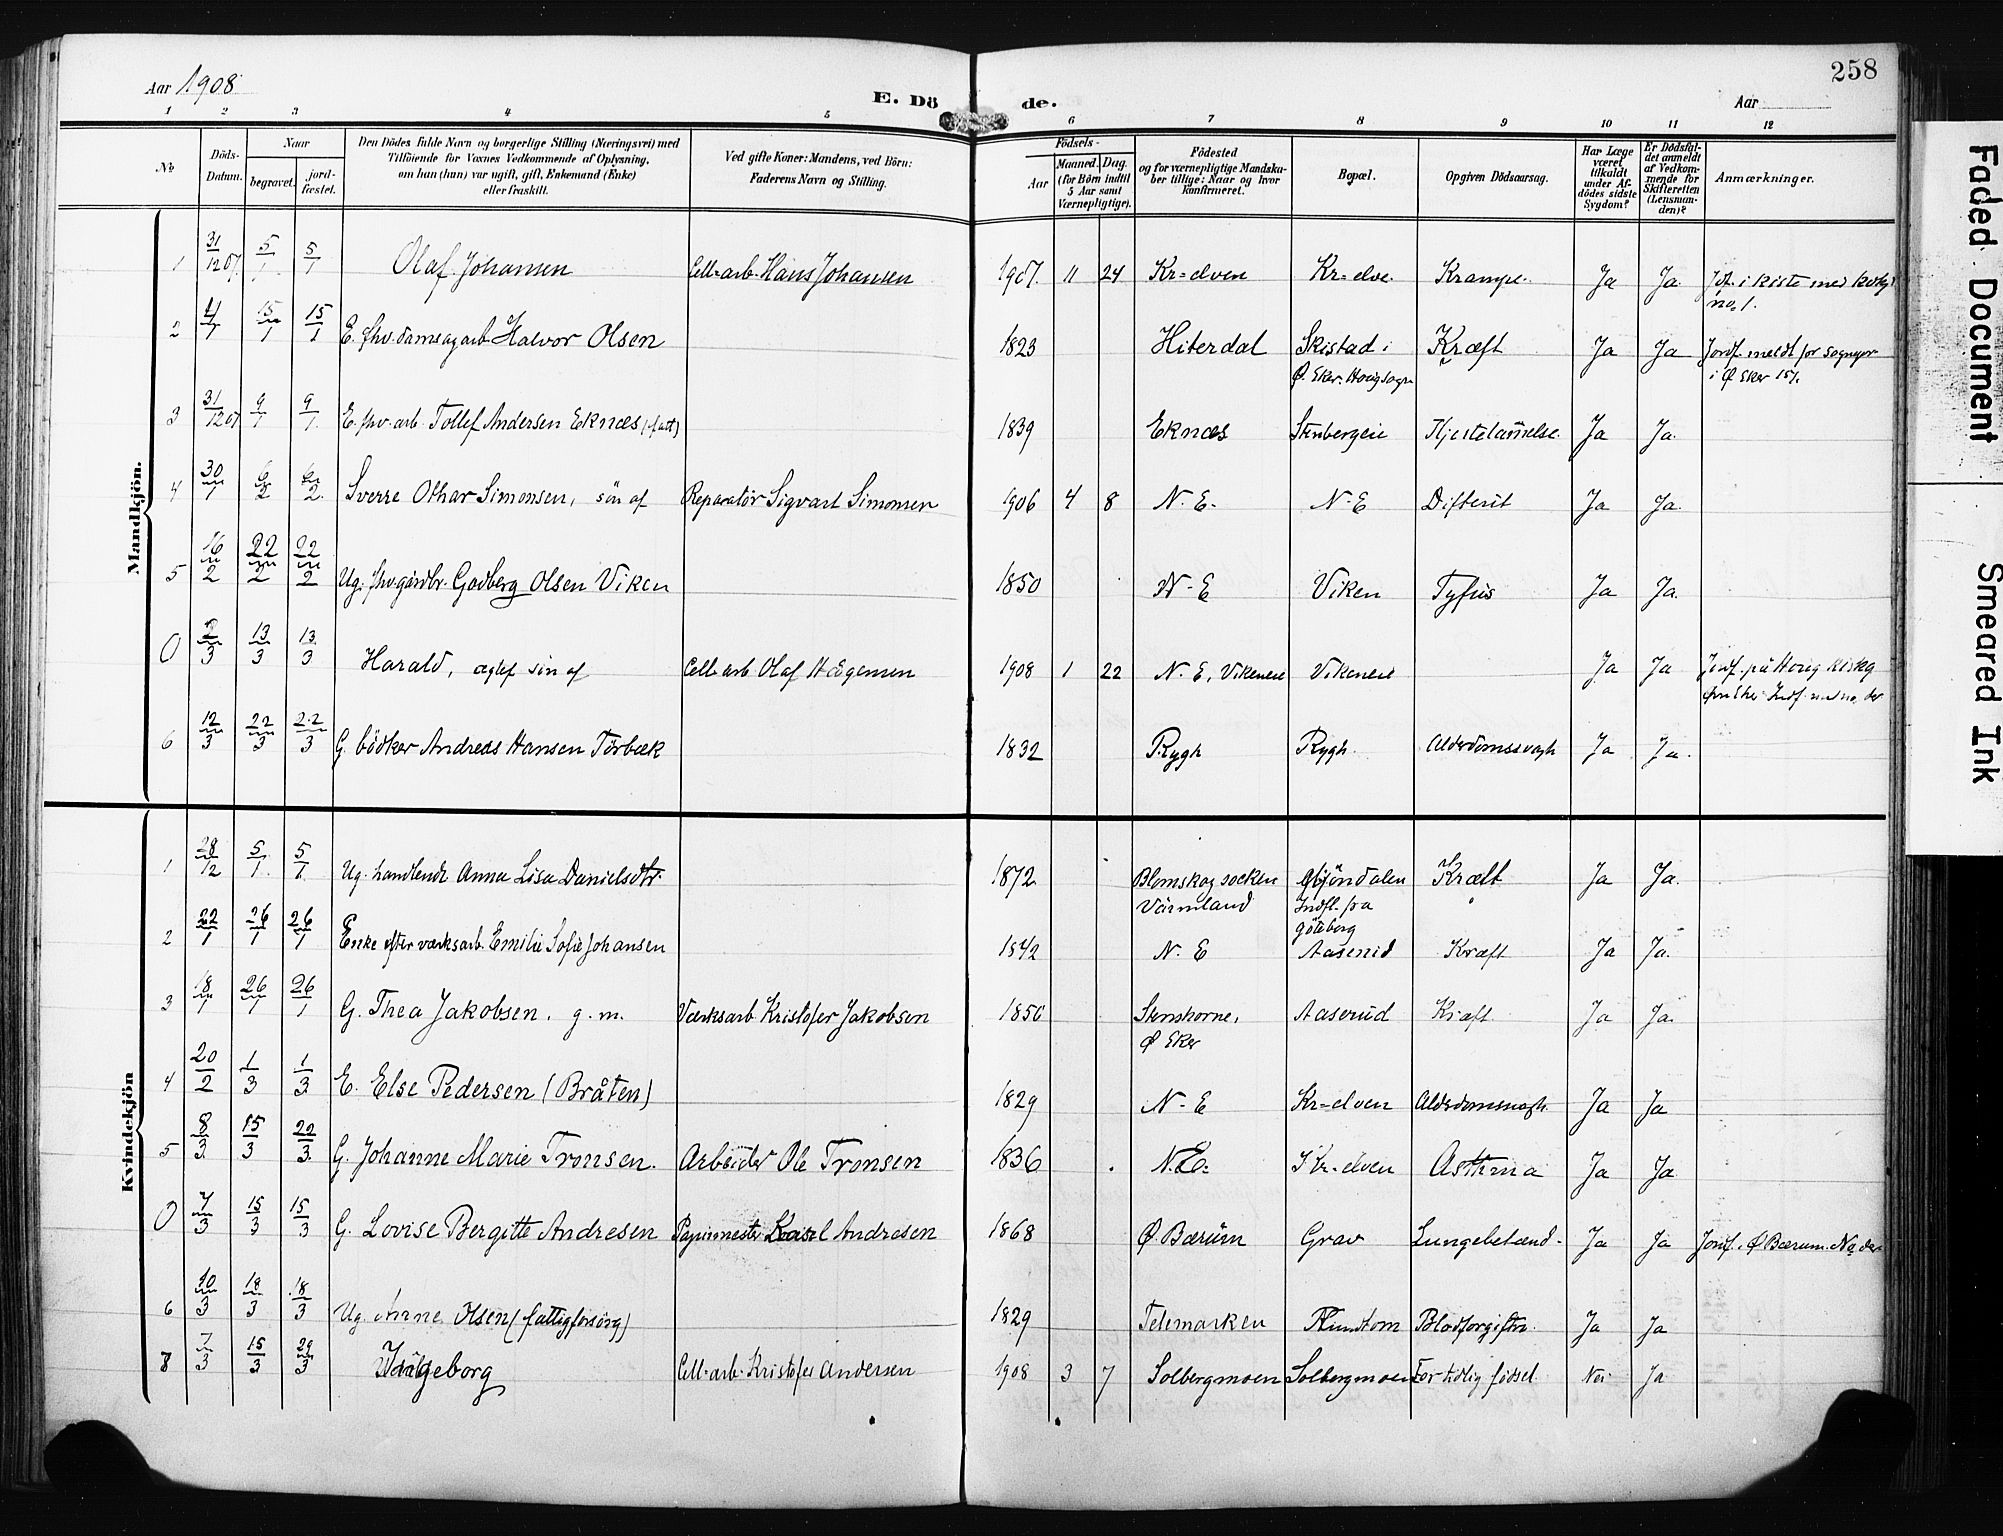 Aar 1908
E. Dö de.
258
Aar
1 2 3 4 5 6 7 8 9 10 11 12
No
Döds-Datum.
Naar
begravet.
jord-fæstet.
Den Dödes fulde Navn og borgerlige Stilling (Næringsvei) med
Tilföiende for Voxnes Vedkommende af Oplysning,
om han (hun) var ugift, gift, Enkemand (Enke)
eller fraskilt.
Ved gifte Koner: Mandens, ved Börn:
Faderens Navn og Stilling.
Födsels-
Aar
Maaned. Dag.
(for Börn indtil
5 Aar samt
Værnepligtige).
Födested
og for værnepligtige Mandska-
ber tillige: Naar og hvor
konfirmeret.
Bopæl.
Opgiven Dödsaarsag.
Har Læge
været
tilkaldt
under Af-
dödes sidste
Sygdom?
Er Dödsfal-
det anmeldt
af Vedkom-
mende for
Skifteretten
(Lensman-
den)?
Anmærkninger.
Mandkjön.
1 31/12 07. 5/1. 5/1 Olaf Johansen Cell-arb. Hans Johansen 1907. 11 24 Kr=elven Kr=elve. Krampe. Ja Ja. i kiste med
no. 1.
2 4/1 15/1 15/1 E. fhv. damsagarb. Halvor Olsen 1823 Hiterdal Skistad i Kræft Ja Ja Jordf. meldt for sognepr
Ø. Eker. Haugsogn i Ø Eker 15/1.
3 31/12 07 9/1 9/1. E. fhv. arb. Tollef Andersen Eknæs (fatt) 1839 Eknæs Stenbergeie Hjertelammelse. Ja Ja.
4 30/1 6/2 6/2. Sverre Othar Simonsen, sön af Reparatör Sigvart Simonsen 1906 4 8 N. E. N. E Difterit Ja Ja.
5 16/2 22/2 22/2 Ug. fhv. gårdbr. Godberg Olsen Viken 1850 N. E Viken Tyfus Ja Ja.
0 2/3 13/3 13/3 Harald, ægtef sön af Cell-arb. Olaf Hægensen 1908 1 22 N. E, Vikeneie Vikeneie Ja Ja Jordf. på Haug
6 12/3 22/3 22/3 G. bödker Andreas Hansen Torbæk 1832 Rygh Rygh. Alderdomssvagh Ja Ja.
Kvindekjön
1 28/12 5/1. 5/1. Ug. handlende Anna Lisa Danielsdtr. 1872 Blomskog socken Mjöndalen Kræft Ja Ja.
Värmland Indfl. fra
Göteborg
2 22/1 26/1 26/1 Enke efter værksarb. Emilie Sofie Johansen 1842 N. E Aaserud Kræft Ja Ja.
3 18/1 26/1 26/1 G. Thea Jakobsen. g.m. Værksarb. Kristofer Jakobsen 1850 Stenshorne, Aaserud Kræft Ja Ja.
Ø Eker
4 20/2 1/3 1/3 E. Else Pedersen (Bråten) 1829 N. E Kr=elven Alderdomssvagh. Ja Ja
5 8/3 15/3 22/3. G. Johanne Marie Tronsen. Arbeider Ole Tronsen 1836 N.E. Kr-elven Asthma Ja Ja
0 7/3 15/3 15/3 G. Lovise Bergitte Andresen Papirmester Andresen 1868 Ø. Bærum Grav Lungebetænd. Ja Ja Jordf. i Ø Bærum. No der
6 10/3 18/3 18/3 Ug. Anne Olsen (fattigforsörg) 1829 Telemarken Blodforgiftn. Ja Ja
7 7/3 15/3 29/3 Ingeborg Cell-arb. Kristofer Andersen 1908 3 7 Solbergmoen Solbergmoen For tidlig födsel Nei Ja
Faded Document
Smeared Ink